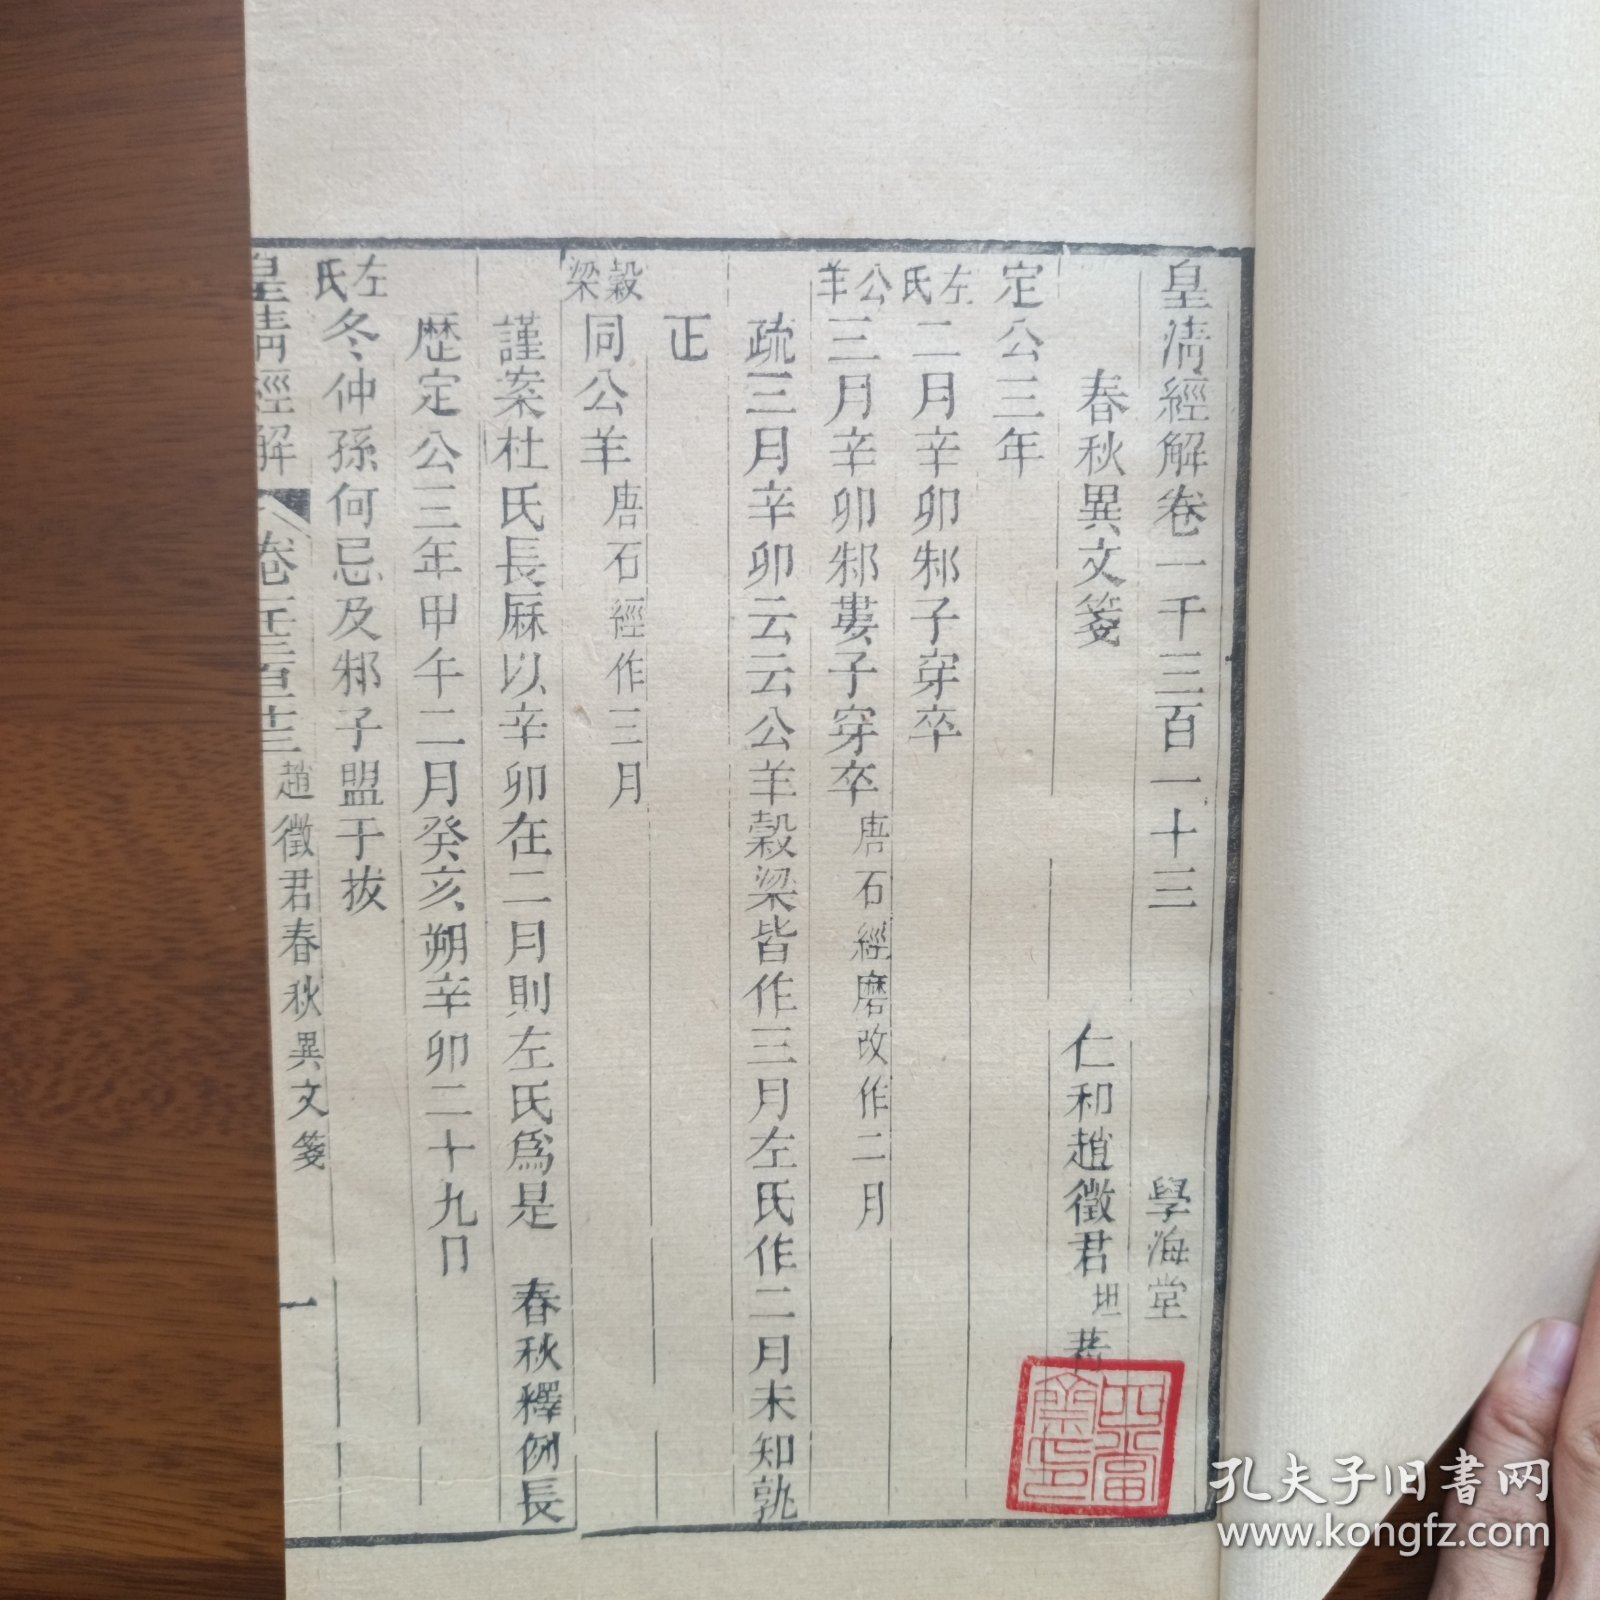 皇清經解卷一千三百一十三 學海堂
春秋異文箋 仁和趙徵君坦著
定公三年
左氏二月辛卯邾子穿卒
公羊三月辛卯邾婁子穿卒唐石經磨改作二月
疏三月辛卯云云公羊穀梁皆作三月左氏作二月未知孰
正
穀梁同公羊唐石經作三月
謹案杜氏長厤以辛卯在二月則左氏爲是 春秋釋例長
歴定公三年甲午二月癸亥朔辛卯二十九日
左氏冬仲孫何忌及邾子盟于拔
皇清經解 卷一千三百十三 趙徵君春秋異文箋 一
孔夫子旧書网
www.kongfz.com